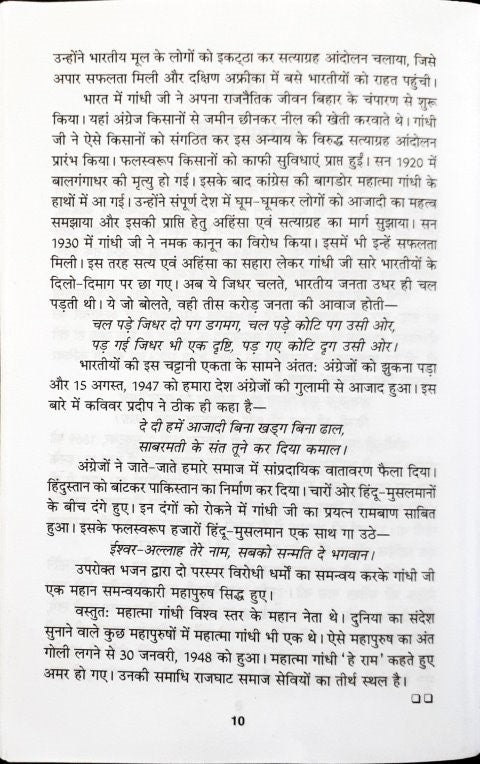 उन्होंने भारतीय मूल के लोगों को इकट्ठा कर सत्याग्रह आंदोलन चलाया, जिसे
अपार सफलता मिली और दक्षिण अफ्रीका में बसे भारतीयों को राहत पहुंची।
भारत में गांधी जी ने अपना राजनैतिक जीवन बिहार के चंपारण से शुरू
किया। यहां अंग्रेज किसानों से जमीन छीनकर नील की खेती करवाते थे। गांधी
जी ने ऐसे किसानों को संगठित कर इस अन्याय के विरुद्ध सत्याग्रह आंदोलन
प्रारंभ किया। फलस्वरूप किसानों को काफी सुविधाएं प्राप्त हुईं। सन 1920 में
बालगंगाधर की मृत्यु हो गई। इसके बाद कांग्रेस की बागडोर महात्मा गांधी के
हाथों में आ गई। उन्होंने संपूर्ण देश में घूम-घूमकर लोगों को आजादी का महत्व
समझाया और इसकी प्राप्ति हेतु अहिंसा एवं सत्याग्रह का मार्ग सुझाया। सन
1930 में गांधी जी ने नमक कानून का विरोध किया। इसमें भी इन्हें सफलता
मिली। इस तरह सत्य एवं अहिंसा का सहारा लेकर गांधी जी सारे भारतीयों के
दिलो-दिमाग पर छा गए। अब ये जिधर चलते, भारतीय जनता उधर ही चल
पड़ती थी। ये जो बोलते, वही तीस करोड़ जनता की आवाज होती—
चल पड़े जिधर दो पग डगमग, चल पड़े कोटि पग उसी ओर,
पड़ गई जिधर भी एक दृष्टि, पड़ गए कोटि दृग उसी ओर।
भारतीयों की इस चट्टानी एकता के सामने अंतत: अंग्रेजों को झुकना पड़ा
और 15 अगस्त, 1947 को हमारा देश अंग्रेजों की गुलामी से आजाद हुआ। इस
बारे में कविवर प्रदीप ने ठीक ही कहा है—
दे दी हमें आजादी बिना खड्ग बिना ढाल,
साबरमती के संत तूने कर दिया कमाल।
अंग्रेजों ने जाते-जाते हमारे समाज में सांप्रदायिक वातावरण फैला दिया।
हिंदुस्तान को बांटकर पाकिस्तान का निर्माण कर दिया। चारों ओर हिंदू-मुसलमानों
के बीच दंगे हुए। इन दंगों को रोकने में गांधी जी का प्रयत्न रामबाण साबित
हुआ। इसके फलस्वरूप हजारों हिंदू-मुसलमान एक साथ गा उठे—
ईश्वर-अल्लाह तेरे नाम, सबको सन्मति दे भगवान।
उपरोक्त भजन द्वारा दो परस्पर विरोधी धर्मों का समन्वय करके गांधी जी
एक महान समन्वयकारी महापुरुष सिद्ध हुए।
वस्तुत: महात्मा गांधी विश्व स्तर के महान नेता थे। दुनिया का संदेश
सुनाने वाले कुछ महापुरुषों में महात्मा गांधी भी एक थे। ऐसे महापुरुष का अंत
गोली लगने से 30 जनवरी, 1948 को हुआ। महात्मा गांधी 'हे राम' कहते हुए
अमर हो गए। उनकी समाधि राजघाट समाज सेवियों का तीर्थ स्थल है।
10